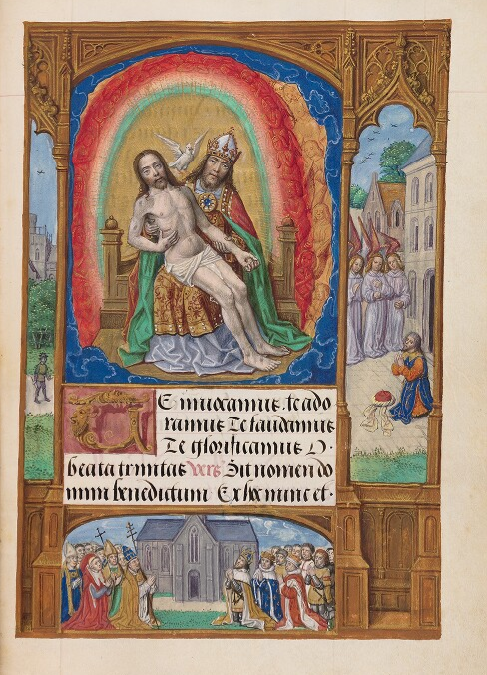 Te inuocamus. te ado
ramus Te laudamus
Te glorificamus O.
beata trinitas vers Sit nomen do
mini benedictum Ex hoc nunc et.